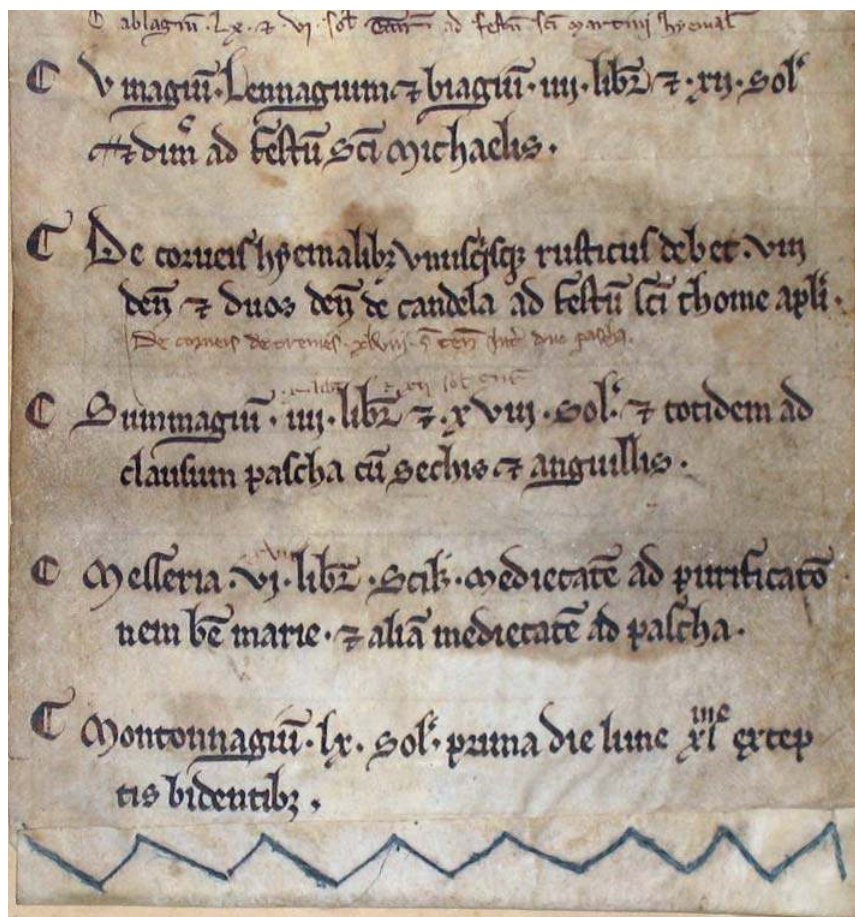 ablagiũ · lx · ⁊ · vi · sol ad festũ sci martini hyemal
Vinagiũ · Lennagium ⁊ biagiũ · iiii · libr̃ ⁊ · xii · Sol'
⁊ dim̃ ad festũ Sc̃i Michaelis ·
De corueis hyemalibꝫ vnusq̃sqꝫ rusticus debet · viii
deñ ⁊ duos deñ de candela ad festũ sc̃i thome apl̃i ·
De corueis · xlviii · s̃ pascha ·
Summagiũ · iiii · libr̃ ⁊ · xviii · Sol' · ⁊ totidem ad
clausum pascha cũ sechis ⁊ anguillis ·
Messeria · vi · libr̃ · Scil̃ · Medietatẽ ad purificatõ
nem bẽ marie · ⁊ aliã medietatẽ ad pascha ·
Montonnagiũ · lx · Sol' · prima die lune xl^me excep
tis bidentibꝫ ·